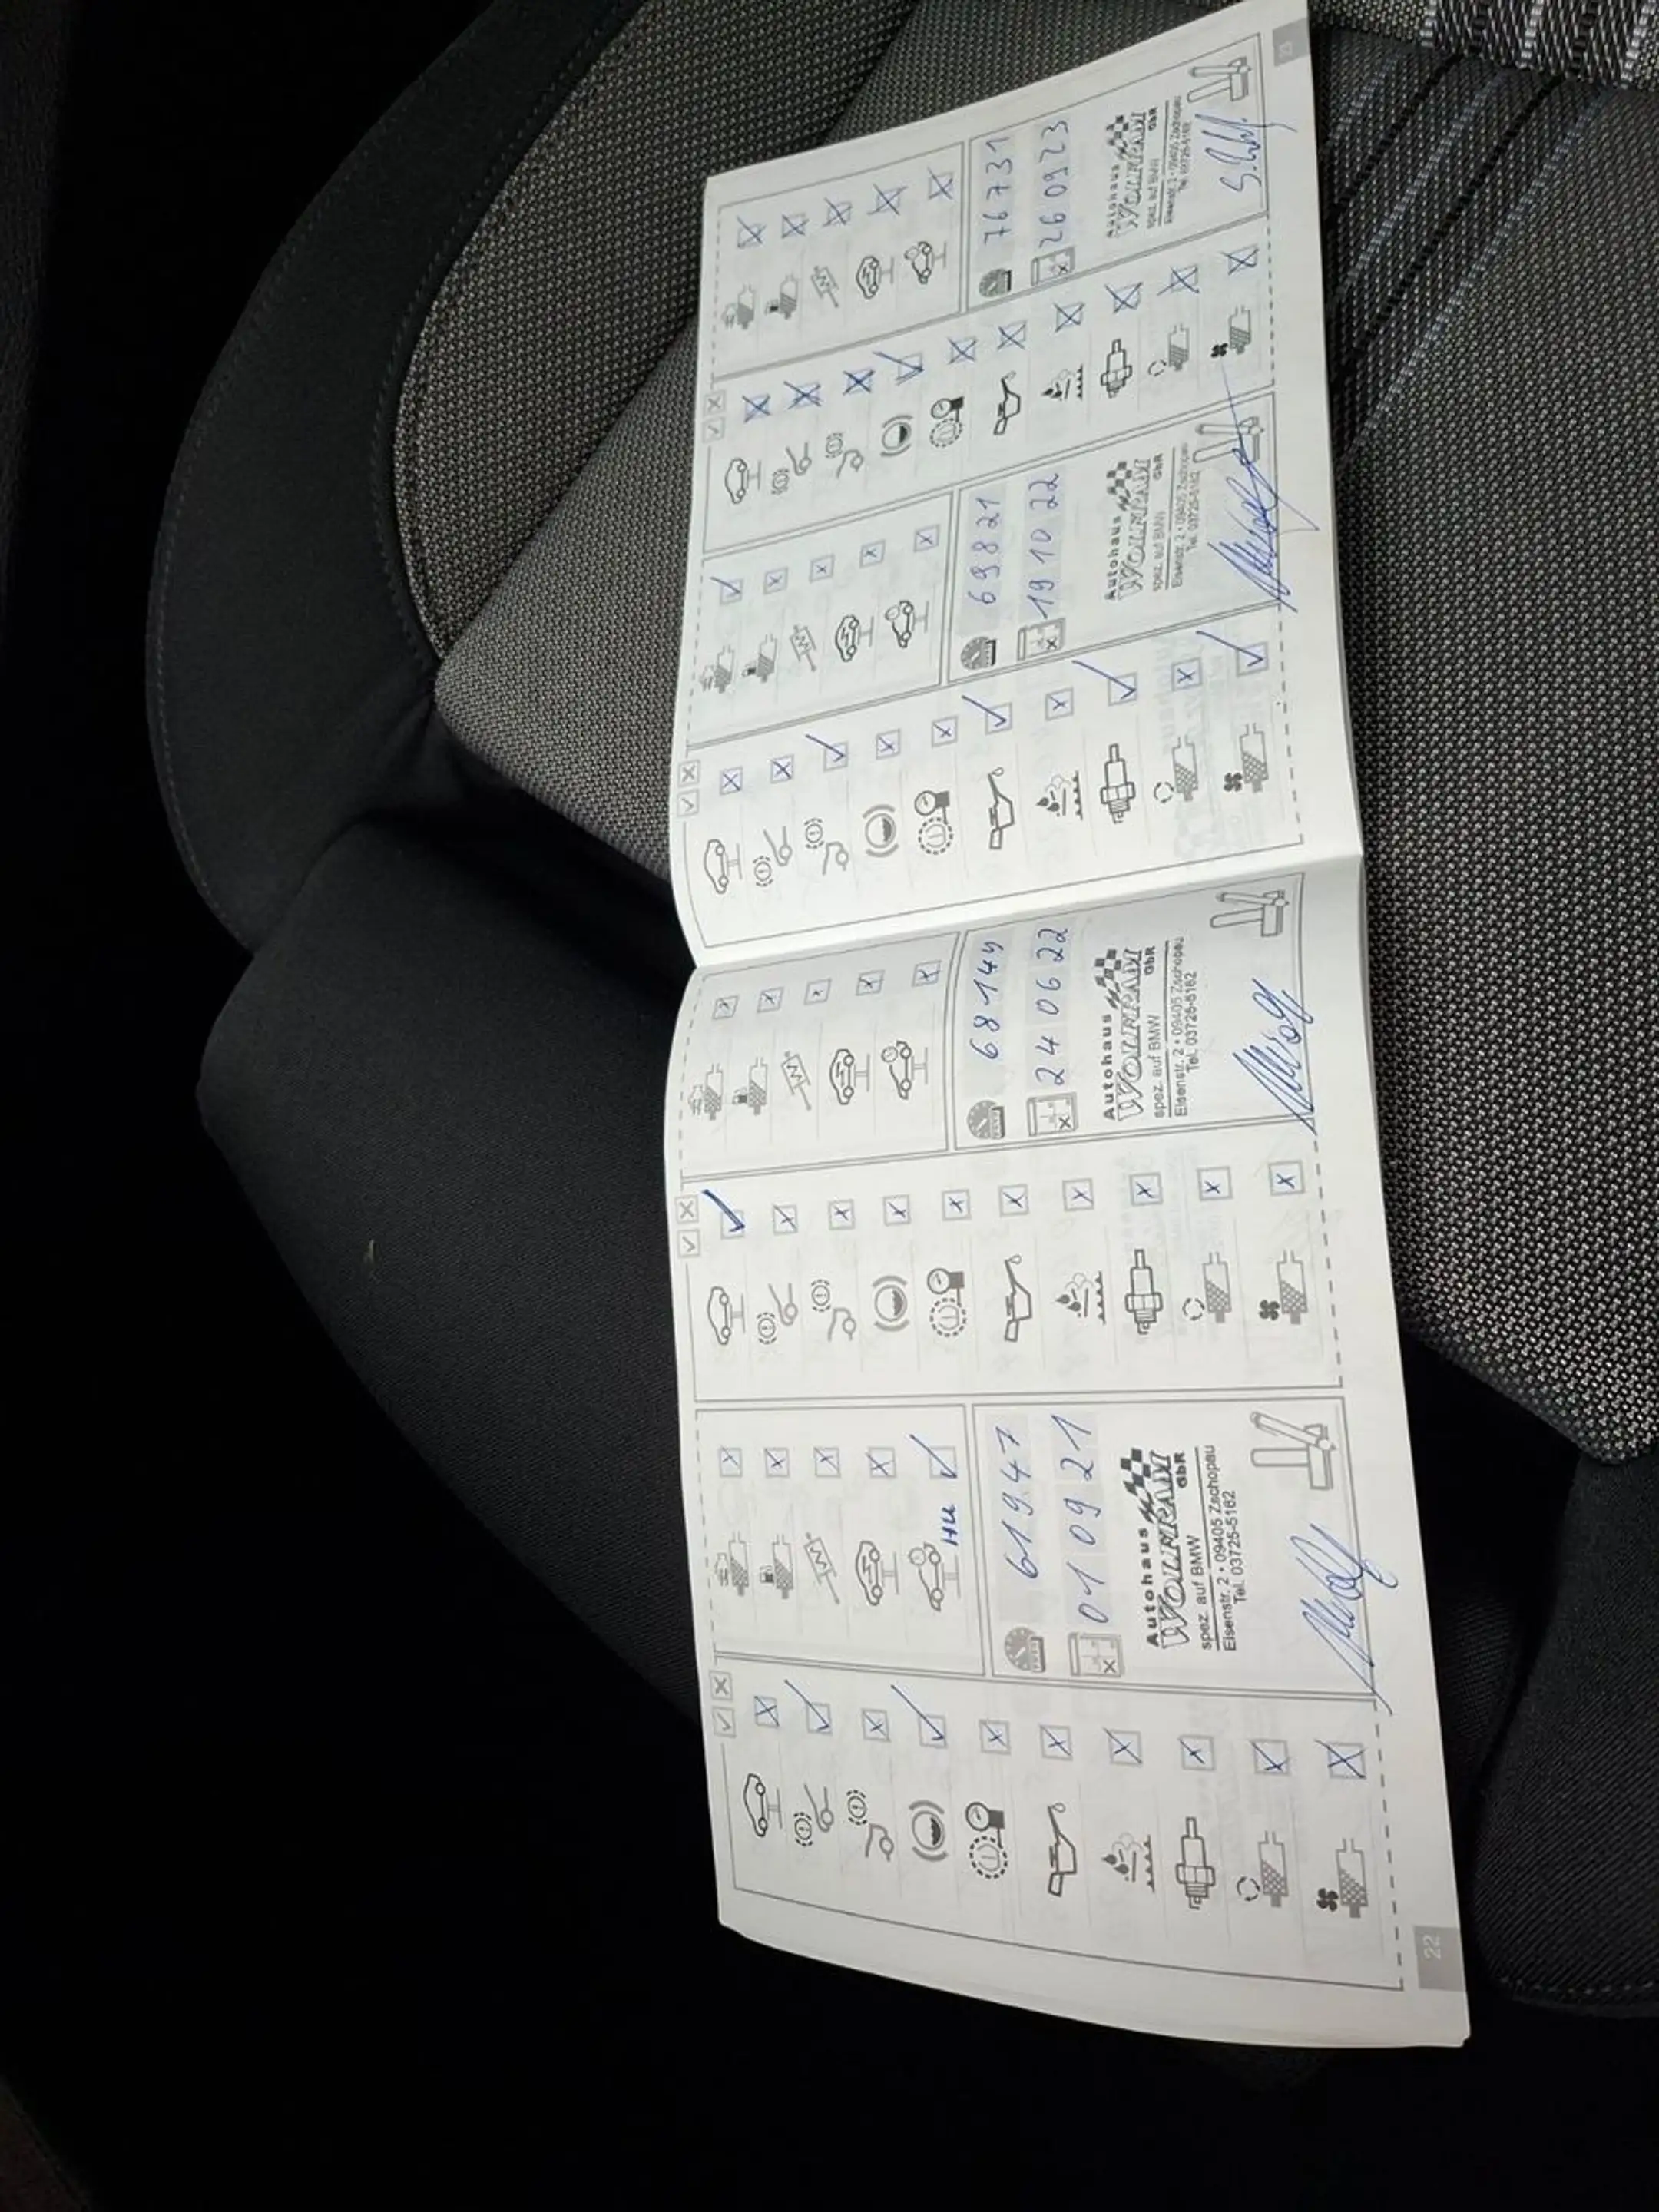 22
HU
61947
01 09 21
Autohaus
WOLFRAM
GbR
spez. auf BMW
Eisenstr. 2 • 09405 Zschopau
Tel. 03725-5162
68144
24 06 22
Autohaus
WOLFRAM
GbR
spez. auf BMW
Eisenstr. 2 • 09405 Zschopau
Tel. 03725-5162
69821
19 10 22
Autohaus
WOLFRAM
GbR
spez. auf BMW
Eisenstr. 2 • 09405 Zschopau
Tel. 03725-5162
76731
26 09 23
Autohaus
WOLFRAM
GbR
spez. auf BMW
Eisenstr. 2 • 09405 Zschopau
Tel. 03725-5162